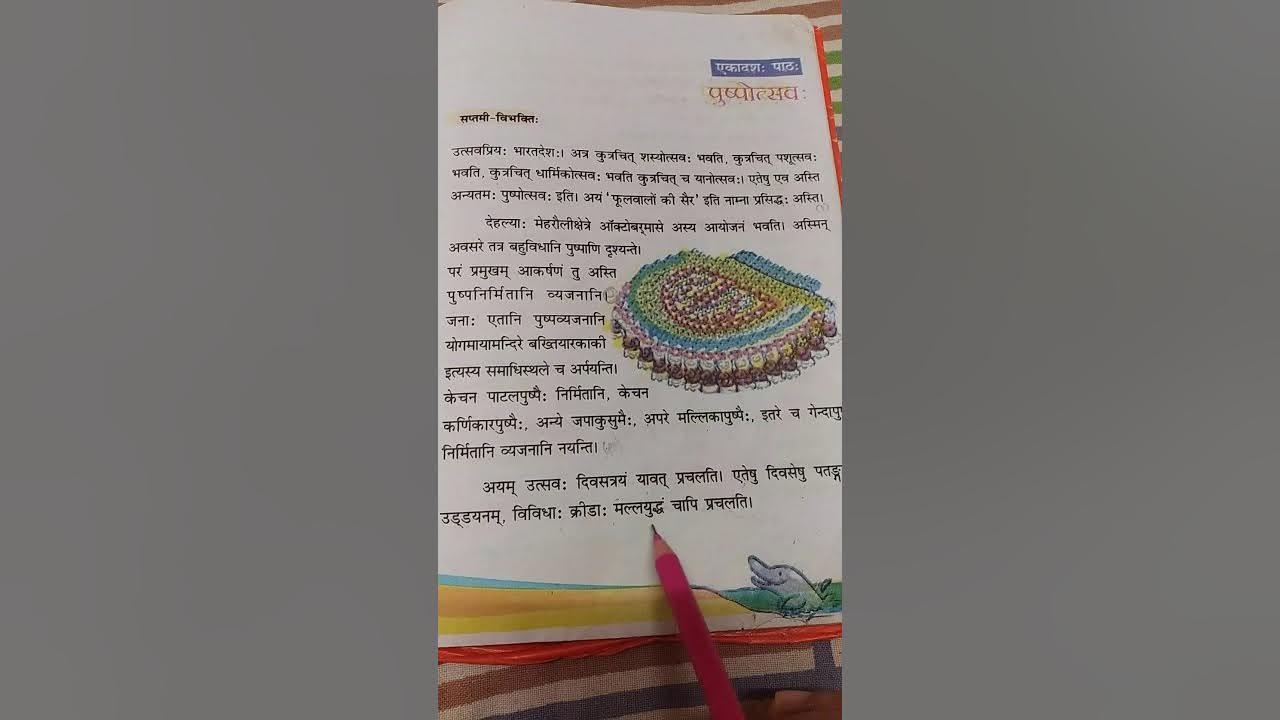 एकादशः पाठः
पुष्पोत्सवः
सप्तमी-विभक्तिः
उत्सवप्रियः भारतदेशः। अत्र कुत्रचित् शस्योत्सवः भवति, कुत्रचित् पशूत्सवः
भवति, कुत्रचित् धार्मिकोत्सवः भवति कुत्रचित् च यानोत्सवः। एतेषु एव अस्ति
अन्यतमः पुष्पोत्सवः इति। अयं ‘फूलवालों की सैर’ इति नाम्ना प्रसिद्धः अस्ति।
देहल्याः मेहरौलीक्षेत्रे ऑक्टोबर्‌मासे अस्य आयोजनं भवति। अस्मिन्
अवसरे तत्र बहुविधानि पुष्पाणि दृश्यन्ते।
परं प्रमुखम् आकर्षणं तु अस्ति
पुष्पनिर्मितानि व्यजनानि।
जनाः एतानि पुष्पव्यजनानि
योगमायामन्दिरे बख्तियारकाकी
इत्यस्य समाधिस्थले च अर्पयन्ति।
केचन पाटलपुष्पैः निर्मितानि, केचन
कर्णिकारपुष्पैः, अन्ये जपाकुसुमैः, अपरे मल्लिकापुष्पैः, इतरे च
निर्मितानि व्यजनानि नयन्ति।
अयम् उत्सवः दिवसत्रयं यावत् प्रचलति। एतेषु दिवसेषु पतङ्ग
उड्डयनम्, विविधाः क्रीडाः मल्लयुद्धं चापि प्रचलति।